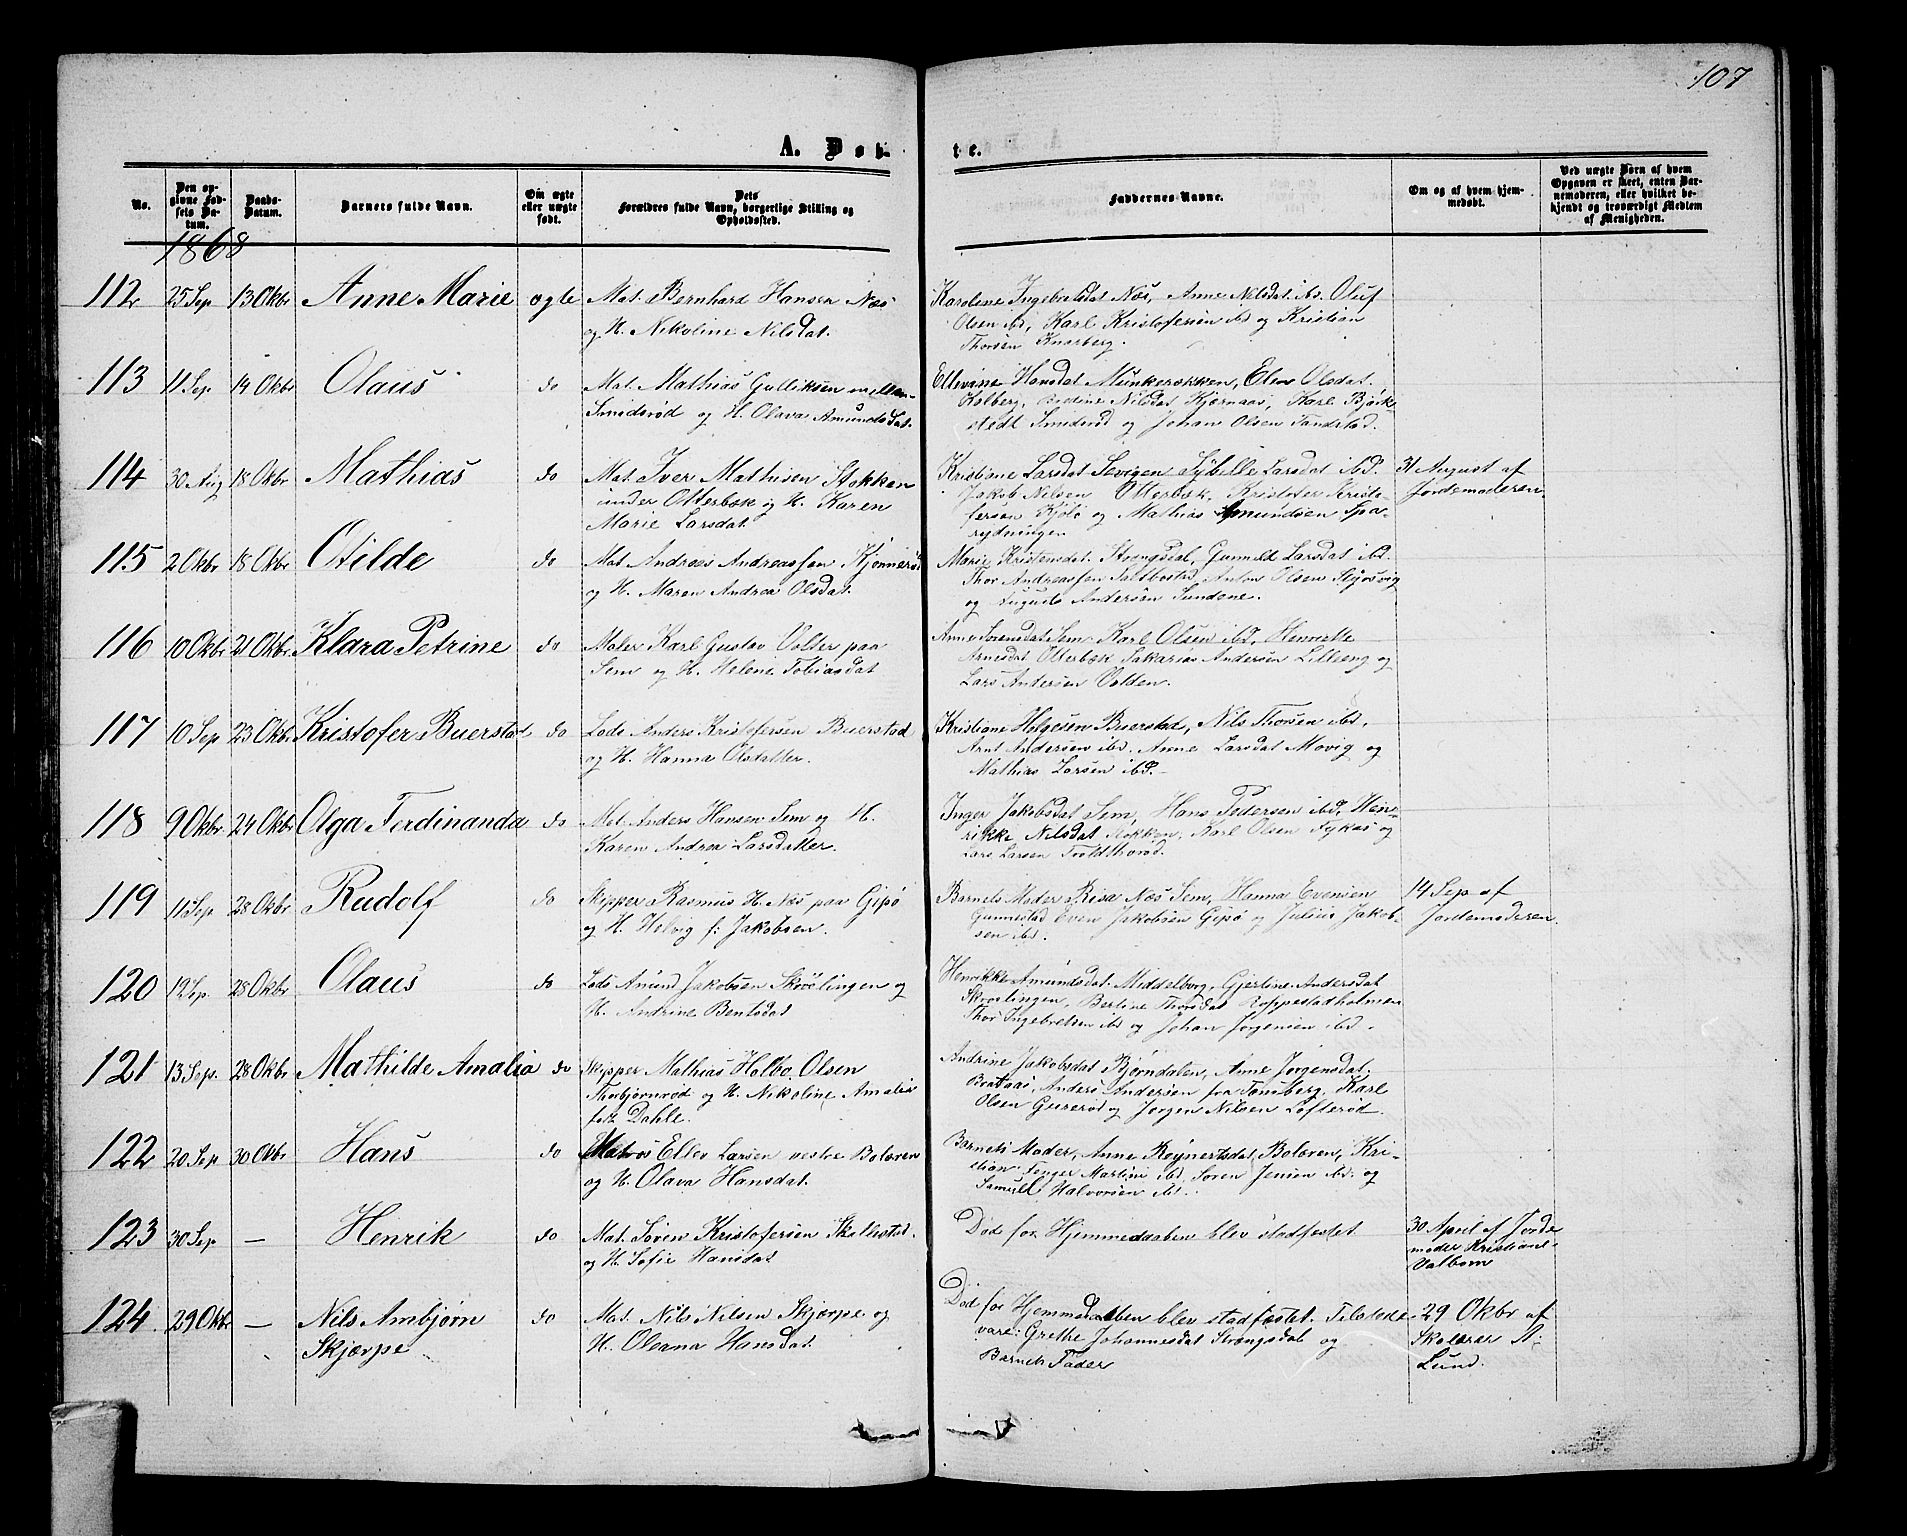 107
A. Døb-
te.
No.
Den op-
givne Fød-
sels Da-
tum.
Daabs-
Datum.
Barnets fulde Navn.
Om ægte
eller uægte
født.
Dets
Forældres fulde Navn, borgerlige Stilling og
Opholdssted.
Faddernes Navne.
Om og af hvem hjem-
medøbt.
Ved uægte Børn af hvem
Opgaven er skeet, enten Bar-
nemoderen, eller hvilket be-
kjendt og troværdigt Medlem
af Menigheden.
1868
112 25 Sep 13 Okbr Anne Marie ægte Mat. Bernhard Hansen Næs
og H. Nikoline Nilsdat.
Karolene Ingebretsdat Næs, Anne Nilsdat ibd. Oluf
Olsen ibd, Karl Kristofersen ibd og Kristian
Thorsen Knarberg.
113 11 Sep. 14 Okbr Olaus do Mat. Mathias Gulliksen mellem-
Smidsrød og H. Olava Amundsdat.
Ellevine Hansdat Munkerækken, Elen Olsdat.
Kolberg, Bredine Nilsdat Kjærnaas, Karl Bjørk-
stedt Smidsrød og Johan Olsen Tandstad.
114 30 Aug 18 Okbr Mathias do Mat. Iver Mathisen Stokken
under Otterbæk og H. Karen
Marie Larsdat.
Kristiane Larsdat Sevigen Sybille Larsdat ibd.
Jakob Nilsen Otterbæk, Kristofer Kristo-
fersen Kjølø og Mathias Amundsen Spa-
rydningen
31 August af
Jordemoderen.
115 2 Okbr 18 Okbr Otilde do Mat. Andreas Andreassen Kjønnerø
og H. Maren Andrea Olsdat.
Marie Kristensdat. Strengsdal, Gunnild Larsdat ibd
Thor Andreassen Saltbostad, Anton Olsen Skjøsvig
og August Andersen Sundene.
116 10 Okbr 21 Okbr Klara Petrine do Maler Karl Gustav Volter paa
Sem og H. Helene Tobiasdat
Anne Sørensdat Sem Karl Olsen ibd, Henriette
Arnesdat Otterbæk Sakarias Andersen Lilleeng og
Lars Andersen Volden.
117 10 Sep 23 Okbr Kristofer Buerstad do Lods Anders Kristofersen Buerstad
og H. Hanna Olsdatter.
Kristiane Helgesen Buerstad, Nils Thorsen ibd,
Arnt Andersen ibd. Anne Larsdat Movig og
Mathias Larsen ibd.
118 9 Okbr. 24 Okbr Olga Ferdinanda do Mat. Anders Hansen Sem og H.
Karen Andrea Larsdatter.
Inger Jakobsdat Sem, Hans Pedersen ibd, Hen-
rikke Nilsdat Stokken, Karl Olsen Fykas og
Lars Larsen
119 11 Sep 28 Okbr Rudolf do Skipper Rasmus H. Næs paa Gipø
og H. Helvig f: Jakobsen.
Barnets Moder Risa Næs Sem, Hanna Evensen
Gunnestad Even Jakobsen Gipø og Julius Jakob-
sen ibd.
14 Sep af
Jordemoderen.
120 12 Sep. 28 Okbr Olaus do Lods Amund Jakobsen Skrøslingen og
H. Andrine Bentsdat
Henrikke Amundsdat. Middelborg, Gjertine Andersdat
Skrøslingen, Bertine Thorsdat Roppestadholmen
Thor Ingebretsen ibd og Johan Jørgensen ibd.
121 13 Sep. 28 Okbr Mathilde Amalia do Skipper Mathias Holbo Olsen
Thorbjørnrød og H. Nikoline Amalia
født Dahle.
Andrine Jakobsdat Bjørndalen, Anne Jørgensdat.
Brataas, Anders Andersen fra Tønsberg, Karl
Olsen Guserød og Jørgen Nilsen Lofterød.
122 20 Sep 30 Okbr Hans do Matros Ellev Larsen vestre Bolæren
og H. Olava Hansdat.
Barnets Moder, Anne Reynertsdat, Bolæren, Kri-
stian Fenger Martini ibd. Søren Jensen ibd. og
Samuel Halvorsen ibd.
123 30 Sep — Henrik do Mat. Søren Kristofersen Skallestad.
og H. Sofie Hansdat
Død før Hjemmedaaben blev stadfæstet
30 April af Jorde
moder Kristiane
Valbom
124 29 Okbr — Nils Ambjørn
Skjærpe
do Mat. Nils Nilsen Skjærpe og
H. Oleana Hansdat.
Død før Hjemmedaaben blev stadfæstet. Tilstede-
vare: Grethe Johannesdat Strengsdal og
Barnets Fader
29 Okbr af
Skolærer A.
Lund.